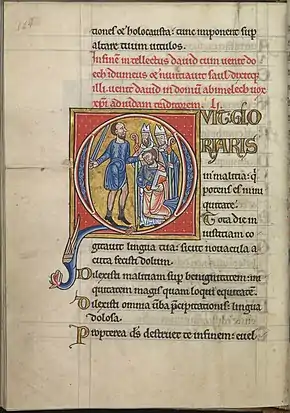 tiones et holocausta: tunc imponent sup
altare tuum vitulos.
Infinē intellectus david cum uenit do
ech idumeus et nuntiauit saul dixitq;
illi. uenit david in domū abimelech uox
xp̄i ad iudam traditorem. LI.
QUIT GLO
RIARIS
in malitia: q̄
potens es in ini
quitate.
Tota die in
iustitiam co
gitauit lingua tua: sicut nouacula a
cuta fecisti dolum.
Dilexisti malitiam sup benignitatem: ini
quitatem magis quam loqui equitatē.
Dilexisti omnia uba p̄cipitationis: lingua
dolosa.
Propterea ds̄ destruet te infinem: euel